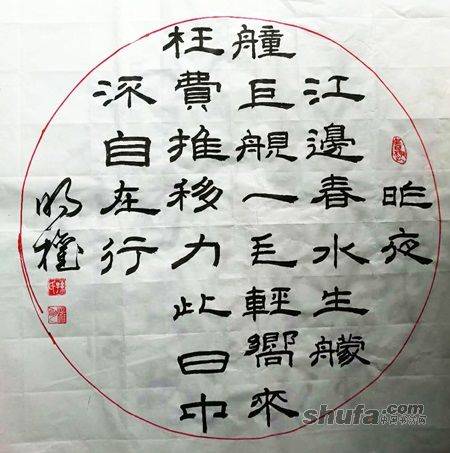 昨夜
江邊春水生艨
艟巨舰一毛輕嚮來
枉費推移力此日中
流自在行
明
shufa.com
中国书法网